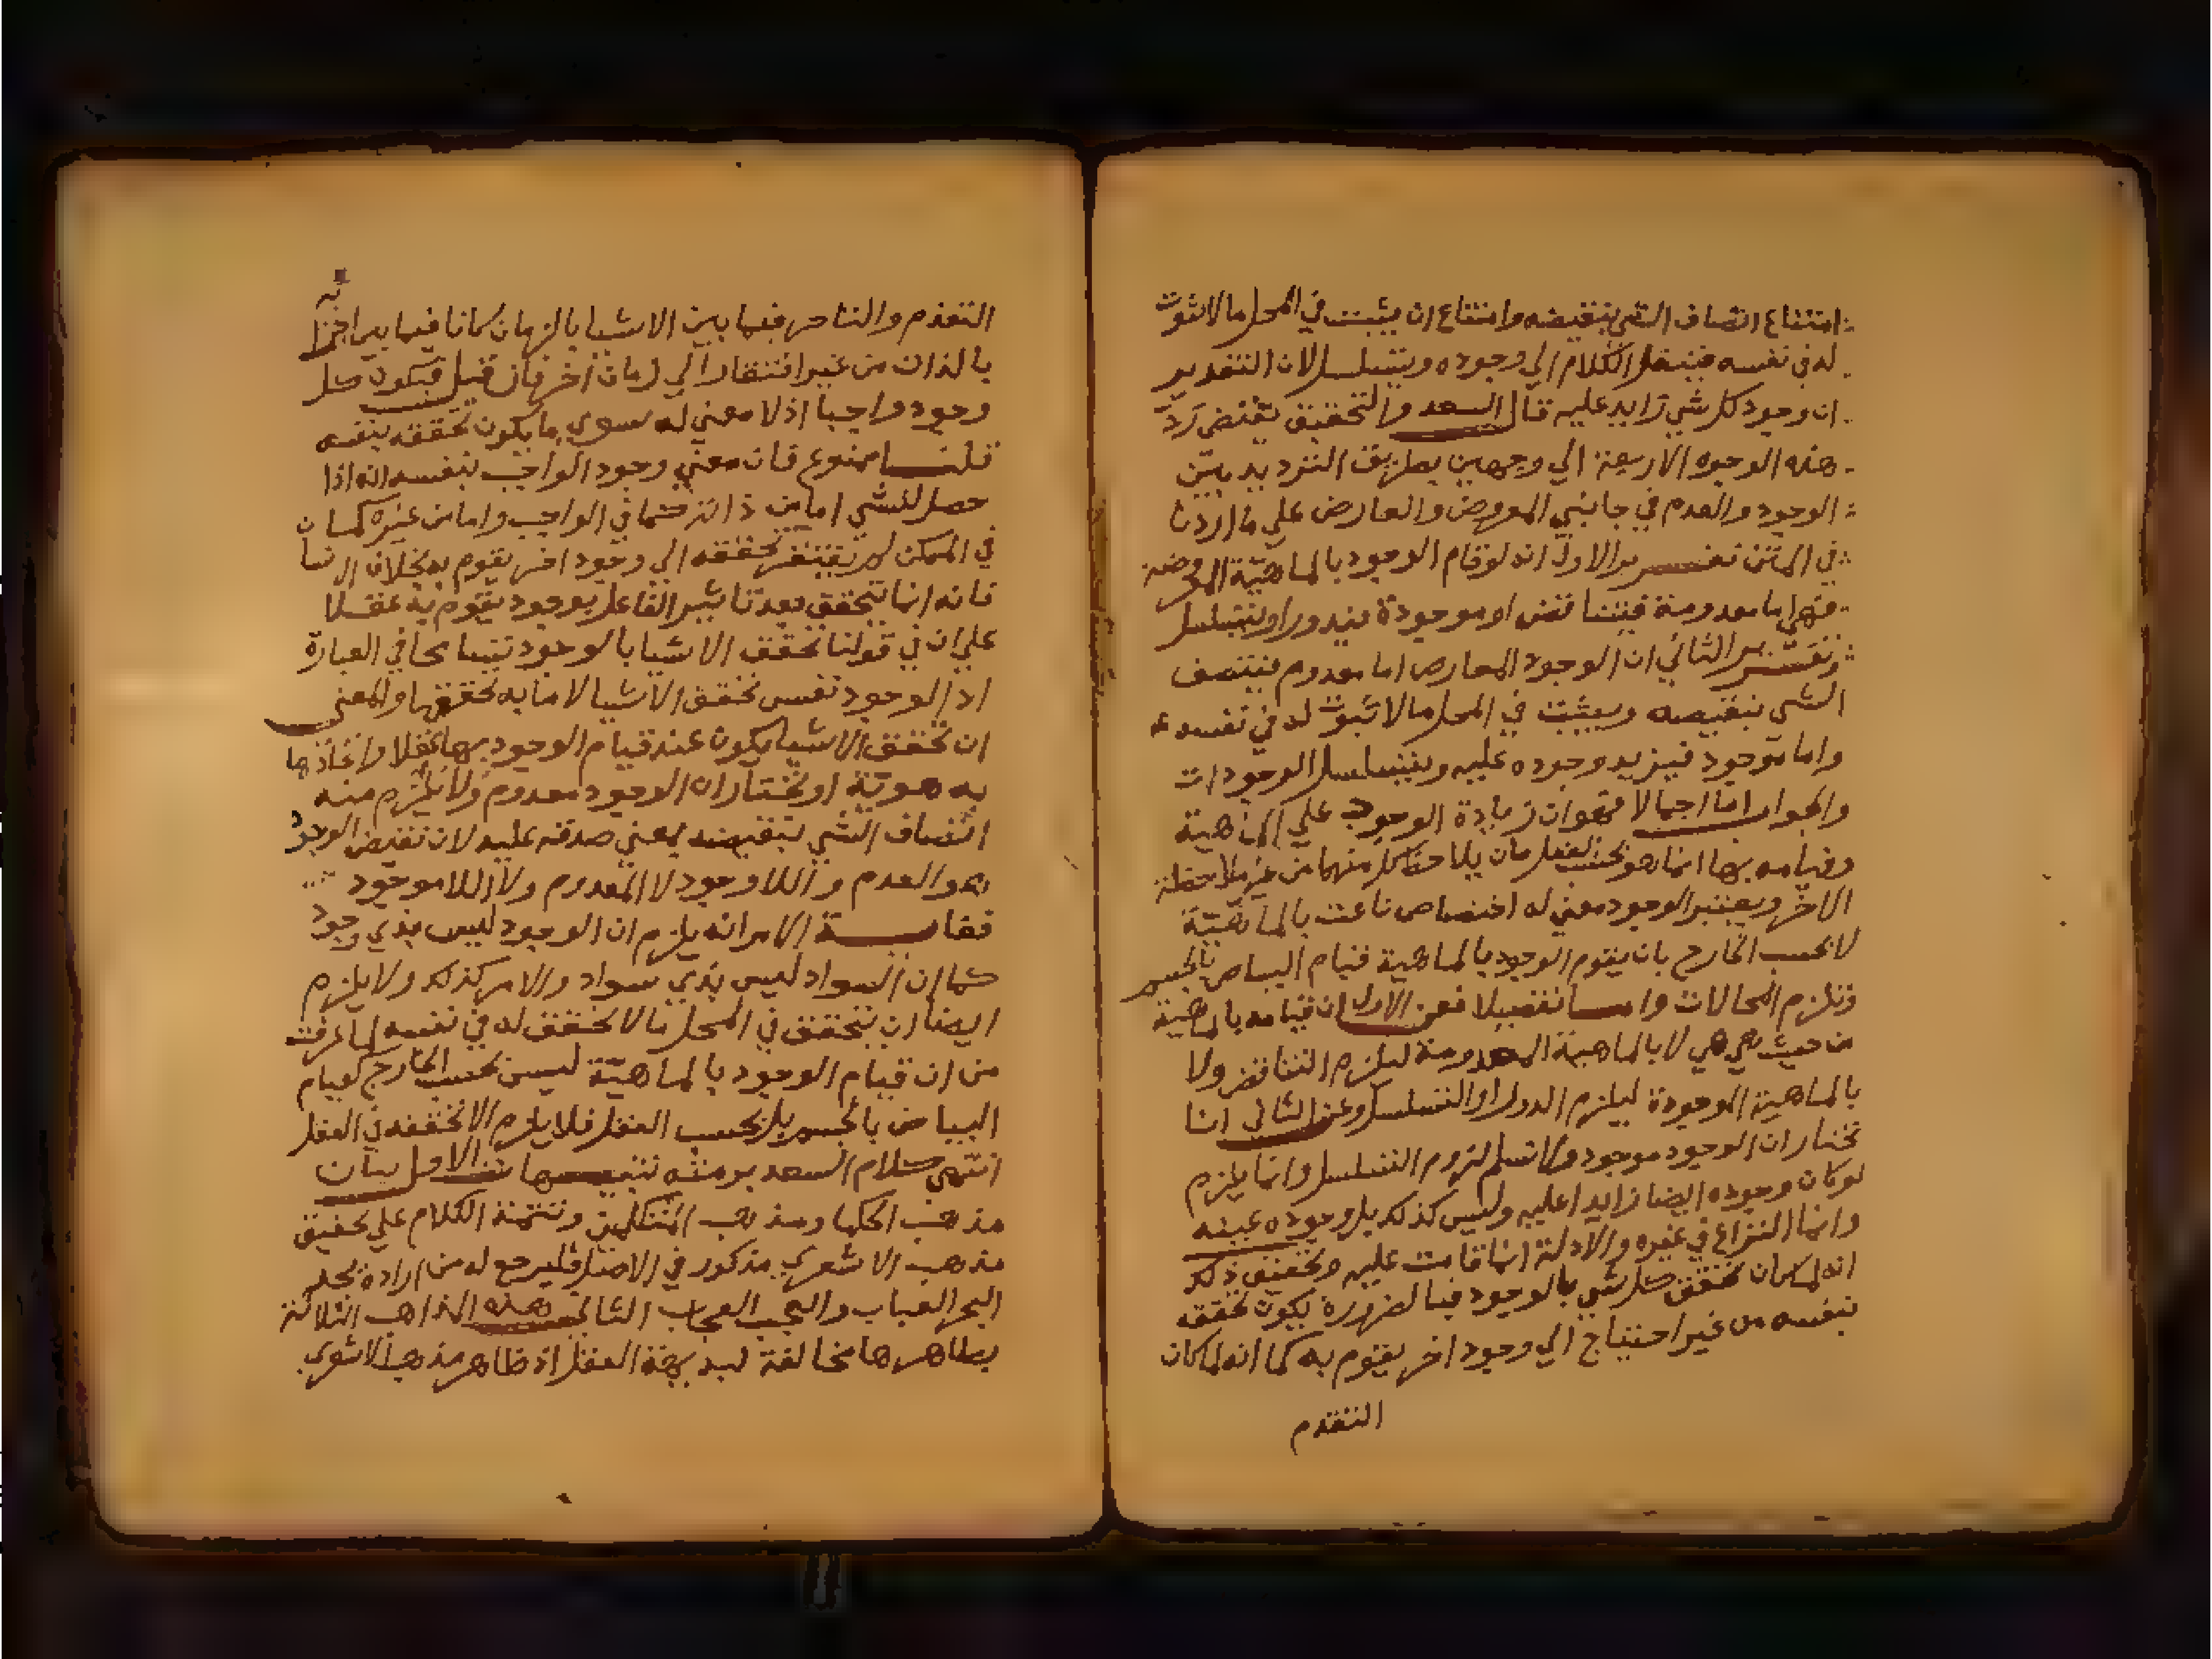 امتناع اتصاف الشي بنقيضه وامتناع ان يثبت في المحل ما لا ثبوت
له في نفسه فينقل الكلام الي وجوده ويتسلسل لان التقدير
ان وجود كل شي زايد عليه قال السعد والتحقيق يقتضي رد
هذه الوجوه الاربعة الي وجهين بطريق الترديد بين
الوجود والعدم في جانبي المعروض والعارض علي ما اردنا
في المتن تقرير الاول انه لو قام الوجود بالماهية المعروضة
فهي اما معدومة فيتناقض او موجودة فيدور او يتسلسل
وتقرير الثاني ان الوجود العارض اما معدوم فيتصف
الشي بنقيضه ويثبت في المحل ما لا ثبوت له في نفسه
واما موجود فيزيد وجوده عليه ويتسلسل الوجودات
والجواب اما اجمالا فهو ان زيادة الوجود علي الماهية
وقيامه بها انما هو بحسب العقل بان يلاحظ كل منهما من غير ملاحظة
الاخر ويعتبر الوجود معني له اختصاص ناعت بالماهية
لا بحسب الخارج بان يقوم الوجود بالماهية قيام البياض بالجسم
وتلزم المحالات واما تفصيلا فعن الاول ان قيامه بالماهية
من حيث هي هي لا بالماهية المعدومة ليلزم التناقض ولا
بالماهية الموجودة ليلزم الدور او التسلسل وعن الثاني انا
نختار ان الوجود موجود ولا نسلم لزوم التسلسل وانما يلزم
لو كان وجوده ايضا زايدا عليه وليس كذلك بل وجوده عينه
وانما النزاع في غيره والادلة انما قامت عليه وتحقيق ذلك
انه لما كان تحقق كل شي بالوجود فبالضرورة يكون تحققه
بنفسه من غير احتياج الي وجود اخر يقوم به كما انه لما كان
التقدم
التقدم والتاخر فيما بين الاشيا بالزمان كانا فيما بين اجزائه
بالذات من غير افتقار الي زمان اخر فان قيل فيكون كل
وجود واجبا اذ لا معني له سوي ما يكون تحققه بنفسه
قلنا ممنوع فان معني وجود الواجب بنفسه انه اذا
حصل للشي اما من ذاته كما في الواجب واما من غيره كما
في الممكن لم يفتقر تحققه الي وجود اخر يقوم به بخلاف الانسان
فانه انما تحقق بعد تاثير الفاعل بوجود يقوم به عقلا
علي ان في قولنا تحقق الاشيا بالوجود تسامحا في العبارة
اذ الوجود نفس تحقق الاشيا لا ما به تحققها والمعني
ان تحقق الاشيا يكون عند قيام الوجود بها عقلا واتحادها
به هوية او نختار ان الوجود معدوم ولا يلزم منه
اتصاف الشي بنقيضه بمعني صدقه عليه لان نقيض الوجود
هو العدم واللاوجود لا المعدوم ولا اللاموجود
فغاية الامر انه يلزم ان الوجود ليس بذي وجود
كما ان السواد ليس بذي سواد والامر كذلك ولا يلزم
ايضا ان يتحقق في المحل ما لا تحقق له في نفسه لما عرفت
من ان قيام الوجود بالماهية ليس بحسب الخارج كقيام
البياض بالجسم بل بحسب العقل فلا يلزم الا تحققه في العقل
انتهي كلام السعد برمته تنبيهات الاول بيان
مذهب الحكما ومذهب المتكلمين وتتمة الكلام علي تحقيق
مذهب الاشعري مذكور في الاصل فليرجع له من اراده يجد
البحر العباب والعجب العجاب الثاني هذه المذاهب الثلاثة
بظاهرها مخالفة لبديهة العقل اذ ظاهر مذهب الاشعري